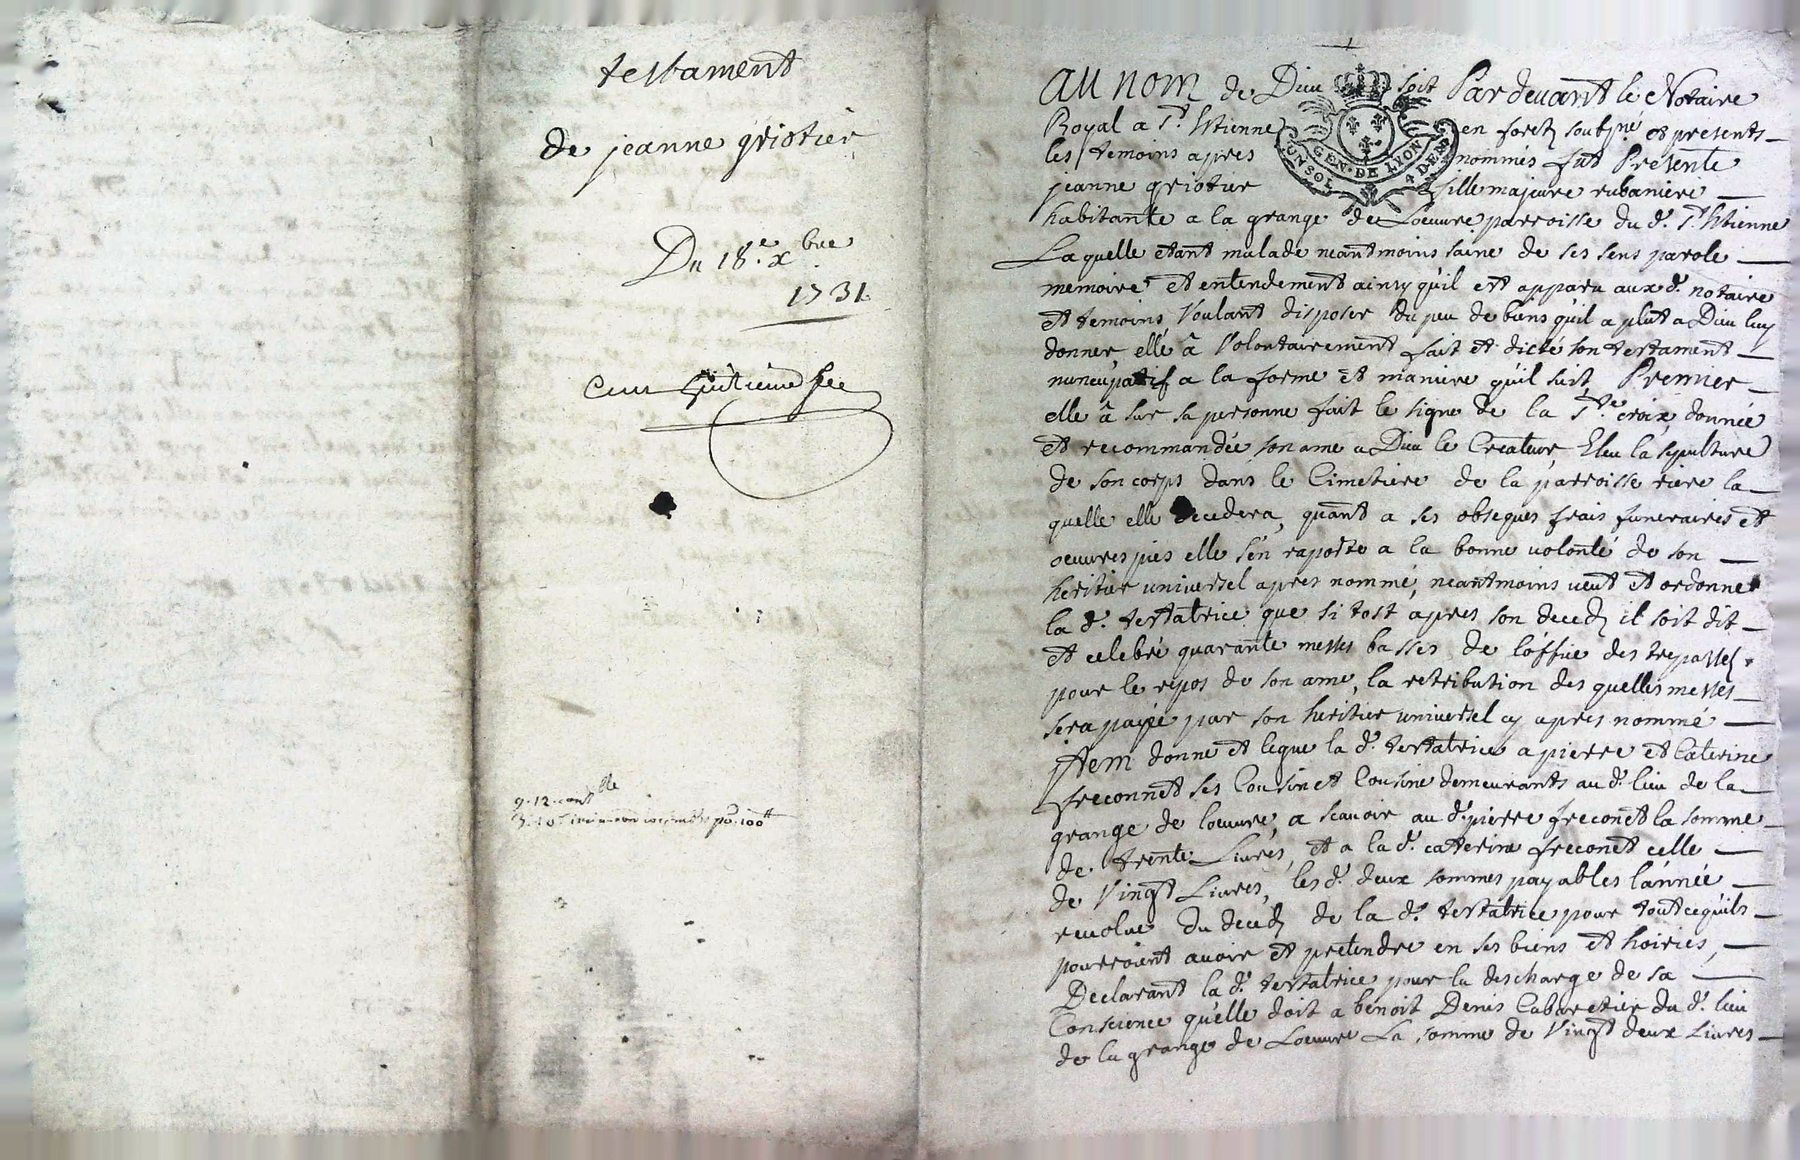 testament
de jeanne griotier
Du 18.e xbre
1731.
9.12. cont.lle
AU NOM de Dieu soit Pardevant le Notaire
Royal a St. Estienne en forez soubsné et presents
les temoins apres nommés fut Presente
jeanne griotier fille majeure rubaniere
habitante a la grange de Loeuvre parroisse du d. St. Estienne
Laquelle etant malade neantmoins saine de ses sens parole
memoire et entendement ainsy qu'il est apparu aux d. notaire
et temoins Voulant disposer du peu de biens qu'il a plut a Dieu luy
donner elle â Volontairement fait et dicté son testament
nuncupatif a la forme et maniere qu'il suit, Premier
elle â sur sa personne fait le signe de la Ste. croix, donnée
et recommandée son ame a Dieu le Createur, Eleu la sepulture
de son corps dans le Cimetiere de la parroisse riere la
quelle elle decedera, quant a ses obseques frais funeraires et
oeuvres pies elle s'en raporte a la bonne volonté de son
heritier universel apres nommé, neantmoins veut et ordonne
la d. testatrice que si tost apres son decedz il soit dit
et celebré quarante messes basses de l'office des trepassez
pour le repos de son ame, la retribution des quelles messes
sera payée par son heritier universel cy apres nommé
Item donne et legue la d. testatrice a pierre et Caterine
freconnet ses Cousin et Cousine demeurants au d. lieu de la
grange de loeuvre, a scavoir au d. pierre freconet la somme
de trente Livres, et a la d. catterine freconet celle
de Vingt Livres, les d. deux sommes payables l'année
revolue du decedz de la d. testatrice pour tout ce qu'ils
pourroient avoir et pretendre en ses biens et hoiries,
Declarant la d. testatrice pour la descharge de sa
Conscience qu'elle doit a benoit Denis Cabaretier du d. lieu
de la grange de Loeuvre La somme de Vingt deux Livres
GEN. DE LYON
UN SOL 4 DEN